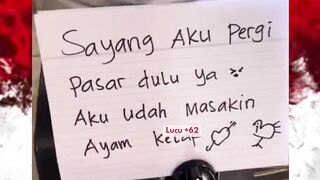 Sayang Aku Pergi
Pasar dulu ya
Aku udah Masakin
Ayam
Lucu +62